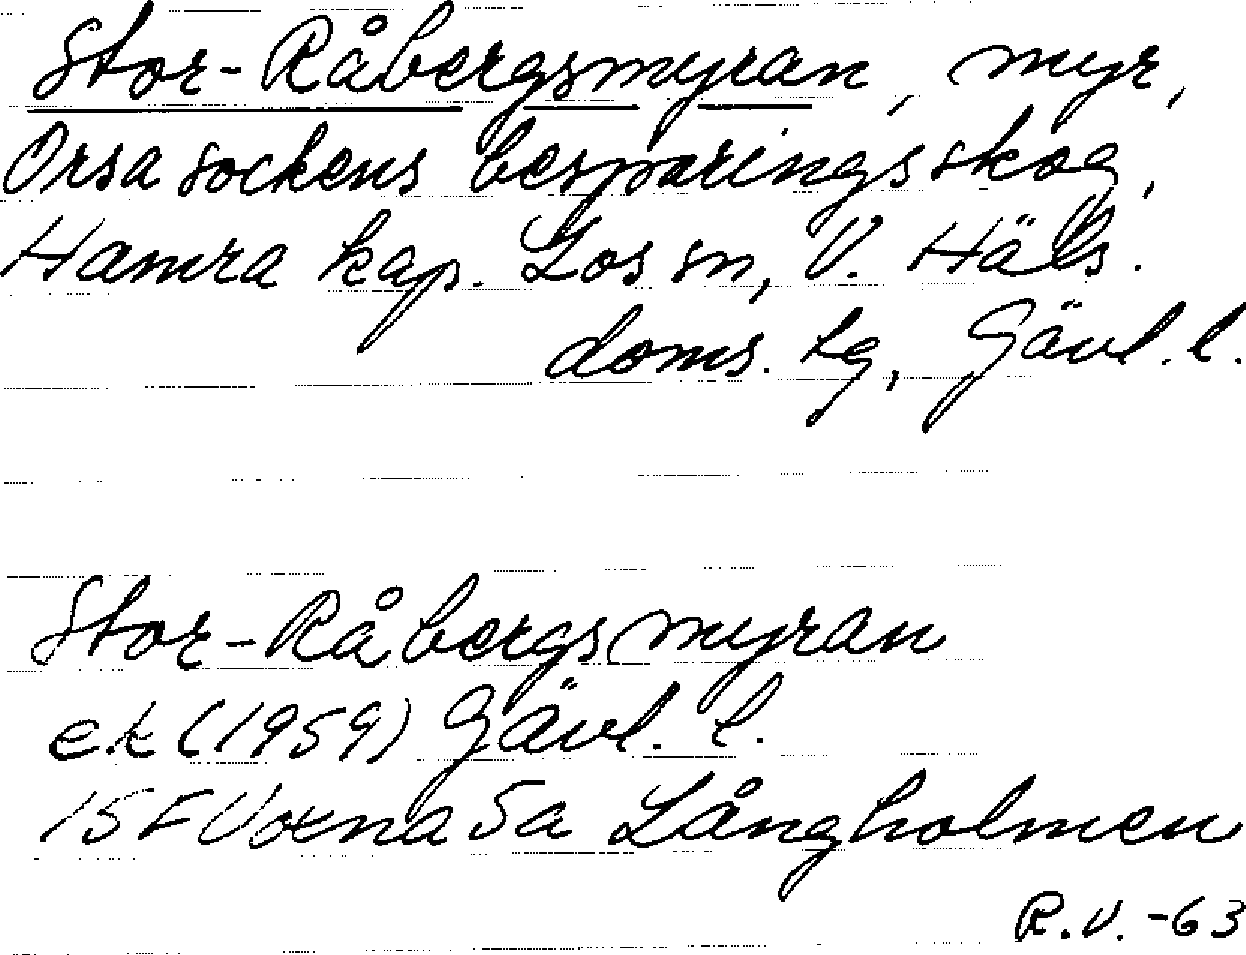 Stor-Råbergsmyran, myr,
Orsa sockens besparingsskog,
Hamra kap. Los sn, V. Häls.
doms. tg, Gävl. l.
Stor-Råbergsmyran
ek (1959) Gävl. l.
15 F Voxna 5a Långholmen
R.V. -63